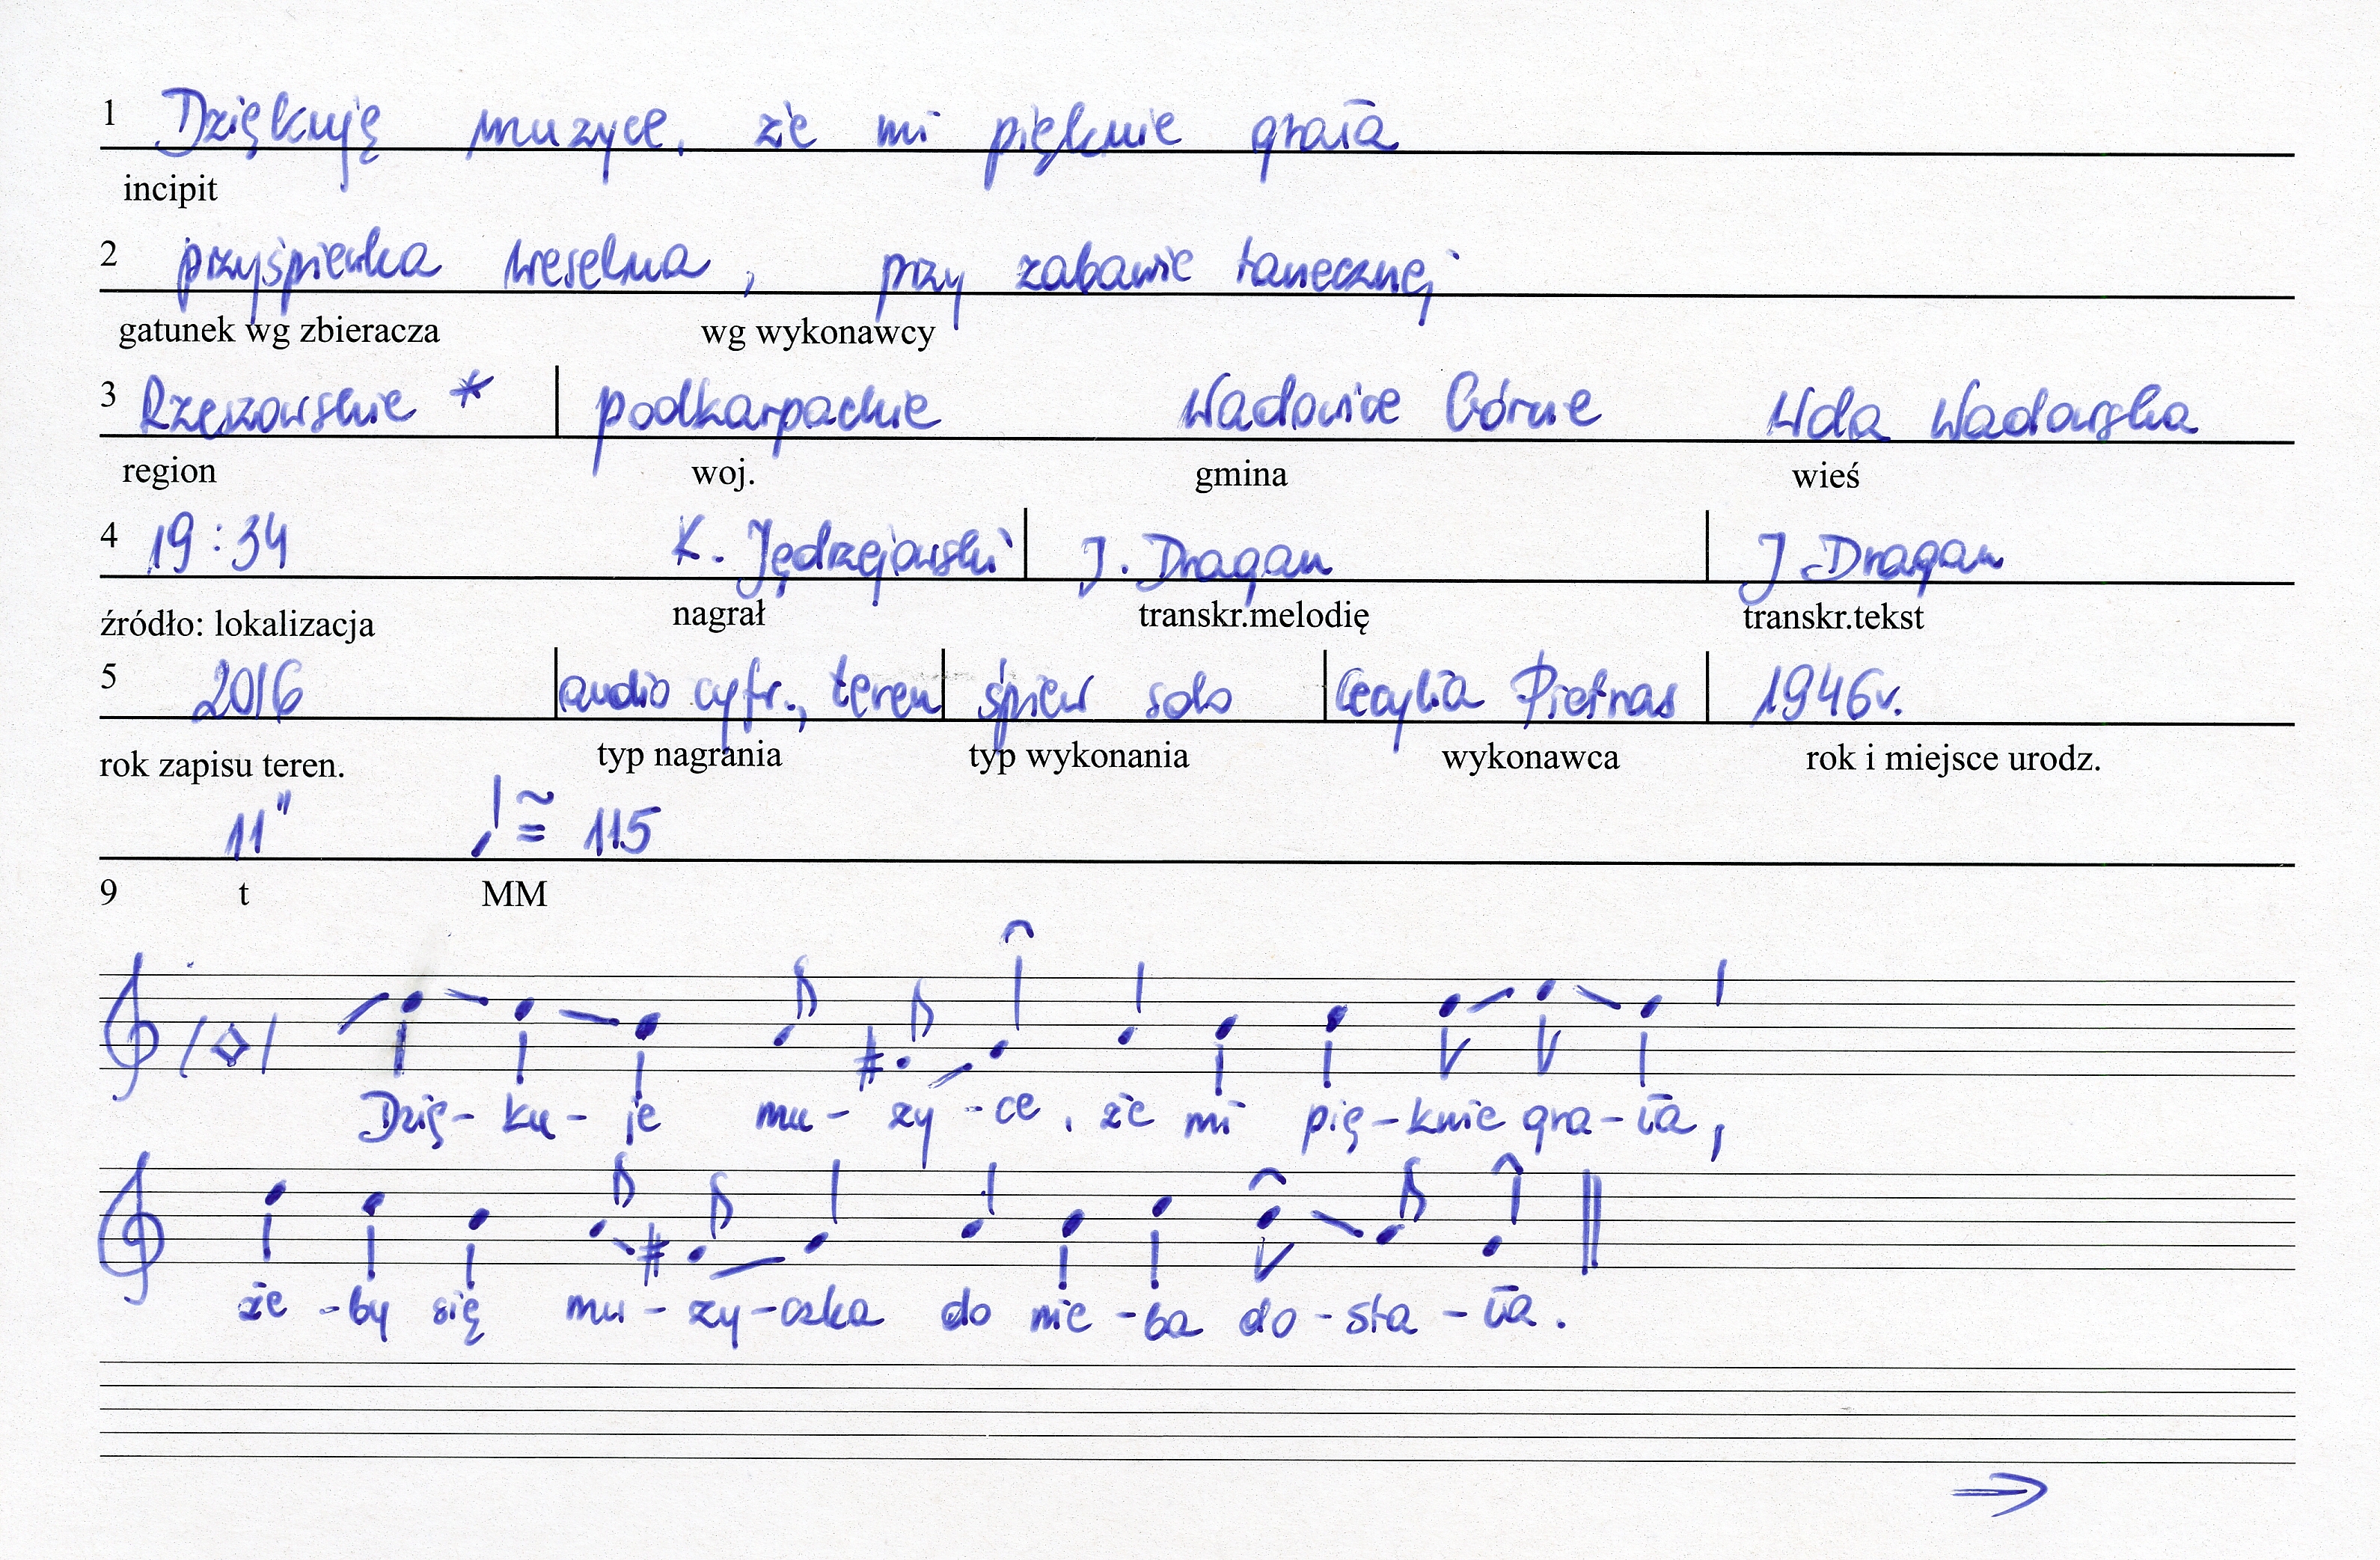 1 Dziękuję muzyce, że mi pięknie grała
incipit
2 przyśpiewka weselna, przy zabawie tanecznej
gatunek wg zbieracza wg wykonawcy
3 Rzeszowskie * podkarpackie Wadowice Górne Wola Wadowska
region woj. gmina wieś
4 19:34 K. Jędrzejowski J. Dragan J. Dragan
źródło: lokalizacja nagrał transkr.melodię transkr.tekst
5 2016 audio cyfr., teren śpiew solo Cecylia Pietras 1946r.
rok zapisu teren. typ nagrania typ wykonania wykonawca rok i miejsce urodz.
11" ≅ 115
9 t MM
Dzię - ku - je mu - zy - ce, że mi pię - knie gra - ła,
że - by się mu - zy - czka do nie - ba do - sta - ła.